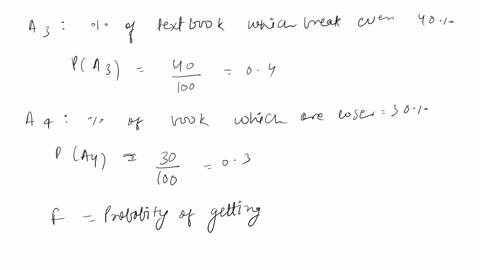 A3 : % of textbook which break even 40%
P(A3) = 40/100 = 0.4
A4 : % of book which are loser = 30%
P(A4) = 30/100 = 0.3
F = Probability of getting